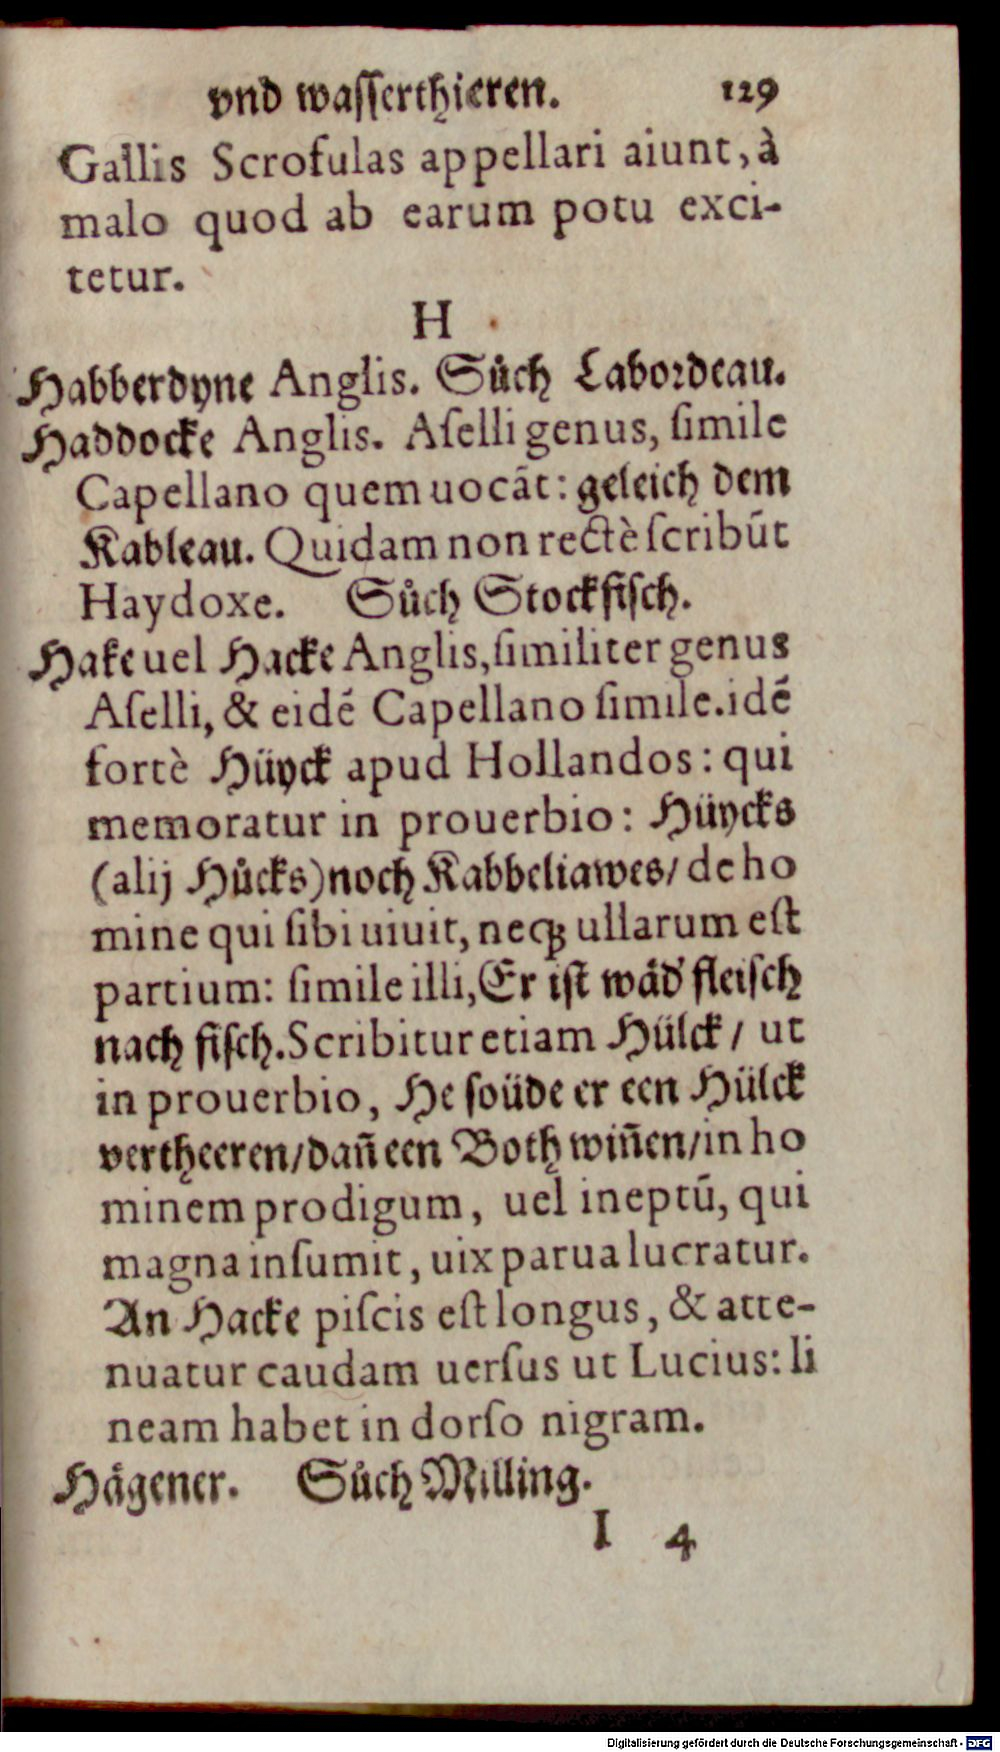 vnd wasserthieren. 129
Gallis Scrofulas appellari aiunt, à
malo quod ab earum potu exci-
tetur.
H
Habberdyne Anglis. Sůch Labordeau.
Haddocke Anglis. Aſelli genus, ſimile
Capellano quem uocāt: geleich dem
Kableau. Quidam non rectè ſcribūt
Haydoxe. Sůch Stockfiſch.
Hake uel Hacke Anglis, ſimiliter genus
Aſelli, & eidē Capellano ſimile. idē
fortè Hüyck apud Hollandos: qui
memoratur in prouerbio: Hüycks
(alij Hůcks) noch Kabbeliawes/ de ho
mine qui ſibi uiuit, neqꝫ ullarum eſt
partium: ſimile illi, Er iſt wäd' fleiſch
nach fiſch. Scribitur etiam Hülck/ ut
in prouerbio, He ſoüde er een Hülck
vertheeren/ dañ een Both wiñen/ in ho
minem prodigum, uel ineptū, qui
magna inſumit, uix parua lucratur.
An Hacke piſcis eſt longus, & atte-
nuatur caudam uerſus ut Lucius: li
neam habet in dorſo nigram.
Hägener. Sůch Milling.
I 4
Digitalisierung gefördert durch die Deutsche Forschungsgemeinschaft - DFG